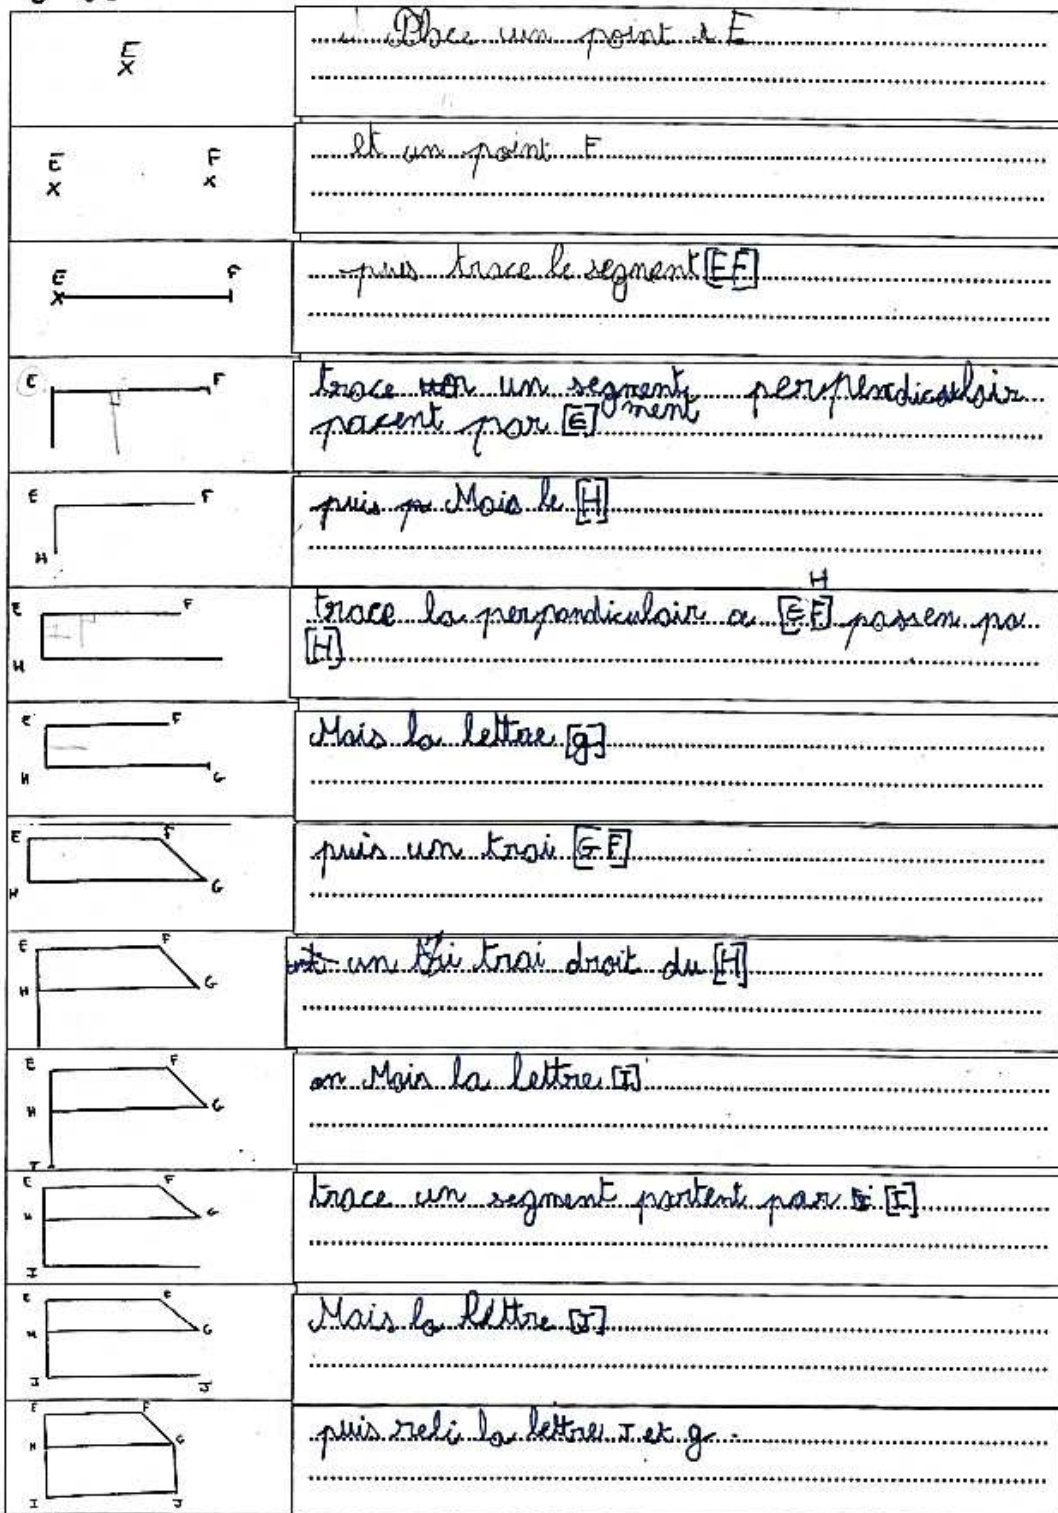 E
Place un point E
E F
et un point F
E F
puis trace le segment [EF]
E F
trace un segment perpendiculair
ment
pacent par [E]
E F
H
puis p Mais le [H]
E F
H
H
trace la perpendiculair a [EF] passen pa
[H]
E F
H G
Mais la lettre [g]
E F
H G
puis un trai [GF]
E F
H G
un trai droit du [H]
E F
H G
I
on Mais la lettre [I]
E F
H G
I
trace un segment partent par [I]
E F
H G
I J
Mais la lettre [J]
E F
H G
I J
puis reli la lettre J et g.